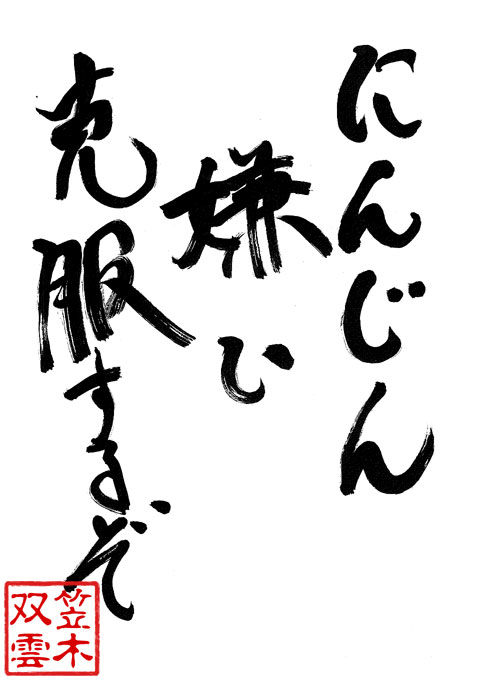 にんじん
嫌い
克服するぞ
笠木
双雲